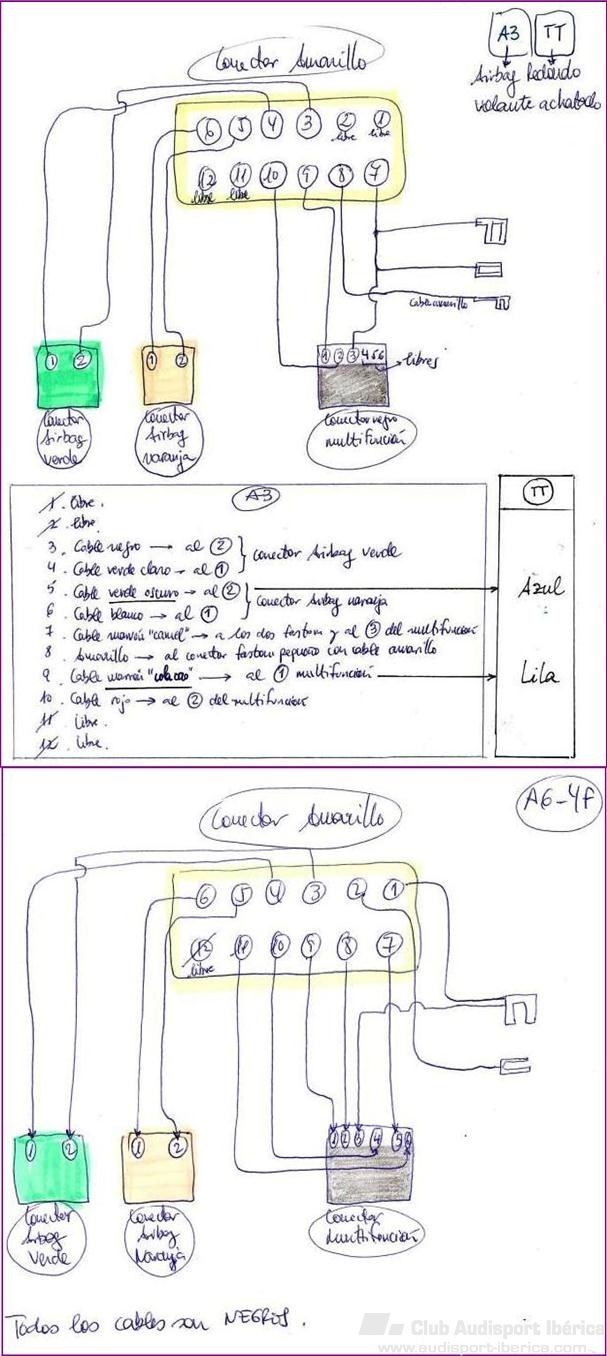 A3 TT
Airbag Redondo
volante achatado
Conector Amarillo
6 5 4 3 2 1
libre libre
12 11 10 9 8 7
libre libre
cable amarillo
1 2 1 2 1 2 3 4 5 6 libres
Conector Airbag verde
Conector Airbag naranja
Conector negro multifunción
A3
TT
1. libre.
2. libre.
3. Cable negro → al 2 } conector Airbag verde
4. Cable verde claro → al 1
5. Cable verde oscuro → al 2 } conector Airbag naranja
Azul
6. Cable blanco → al 1
7. Cable marrón "camel" → a los dos fastom y al 3 del multifunción
8. Amarillo → al conector fastom pequeño con cable amarillo
9. Cable marrón "colacao" → al 1 multifunción
Lila
10. Cable rojo → al 2 del multifunción
11. libre.
12. libre.
A6-4f
Conector Amarillo
6 5 4 3 2 1
12 11 10 9 8 7
libre
1 2 1 2 1 2 3 4 5 6
Conector Airbag Verde
Conector Airbag Naranja
Conector multifunción
Todos los cables son NEGROS.
Club Audisport Ibérica
www.audisport-iberica.com